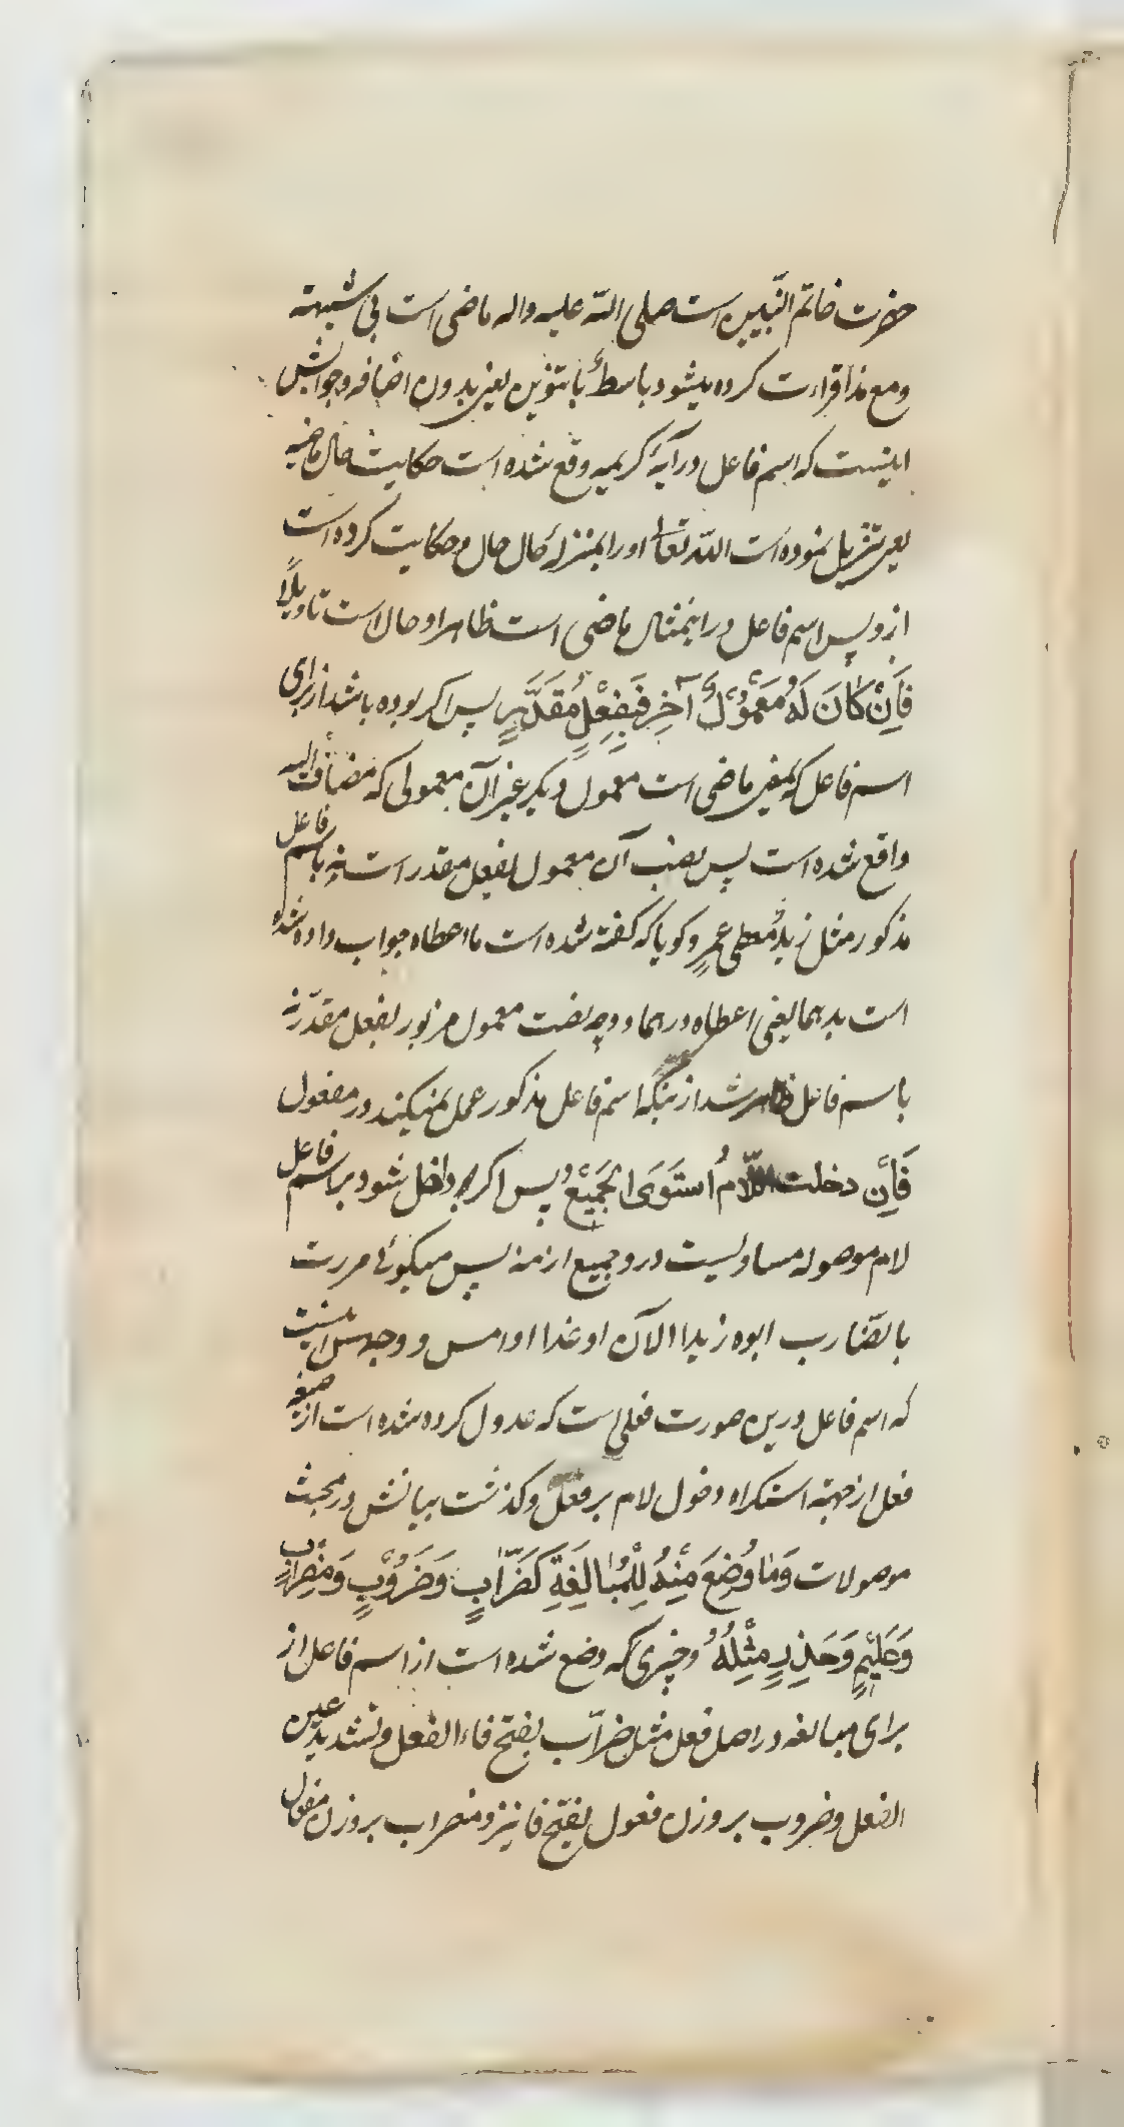 حضرت خاتم النّبیین است صلی اللّه علیه واله ماضی است بی شبهة
ومع هذا قراءت کرده میشود باسطٌ با تنوین یعنی بدون اضافه وجوابش
اینست که اسم فاعل در آیهٔ کریمه وقع شده است حکایت حال ماضیه
یعنی تنزیل نموده است اللّه تعالی او را بمنزلهٔ حال حال و حکایت کرده است
ازو پس اسم فاعل در اینمثال ماضی است ظاهرا و حال است تاویلاً
فَاِنْ کَانَ لَهُ مَعْمُوْلٌ آخَر فَبِفِعْلٍ مُقَدَّرٍ پس اکر بوده باشد از برای
اسم فاعل که بمعنی ماضی است معمول دیکر غیر آن معمولی که مضاف الیه
واقع شده است پس نصب آن معمول بفعل مقدر است نه باسم فاعل
مذکور مثل زیدٌ مُعطی عمرٍو کویا که کفته شده است ما اعطاه جواب داده شده
است بدرهما یعنی اعطاه درهما و وجه نصب معمول مزبور بفعل مقدّر نه
باسم فاعل ظاهر شد از ینکه اسم فاعل مذکور عمل نمیکند در مفعول
فَاِنْ دخلت اللّامُ اُستَوَی الجَمِیْعُ پس اکر داخل شود بر اسم فاعل
لام موصوله مساویست درو جمیع ازمنه پس میکوئی مررت
بالضّارب ابوه زیدا الآن او غدا او امس و وجهش اینست
که اسم فاعل درین صورت فعلی است که عدول کرده شده است از صیغهٔ
فعل از جهة استکراه دخول لام بر فعل و کذشت بیانش در مبحث
موصولات وَمٰا وُضِعَ مِنْهُ لِلْمُبٰالَغَةِ کَضَرّٰابٍ وَضَرُوْبٍ وَمِضْرٰابٍ
وَعَلِیْمٍ وَحَذِرٍ مِثْلُهُ وچیزی که وضع شده است از اسم فاعل از
برای مبالغه در اصل فعل مثل ضرّاب بفتح فاء الفعل و تشدید عین
الفعل وضروب بر وزن فعول بفتح فا نیز و مضراب بر وزن مفعال